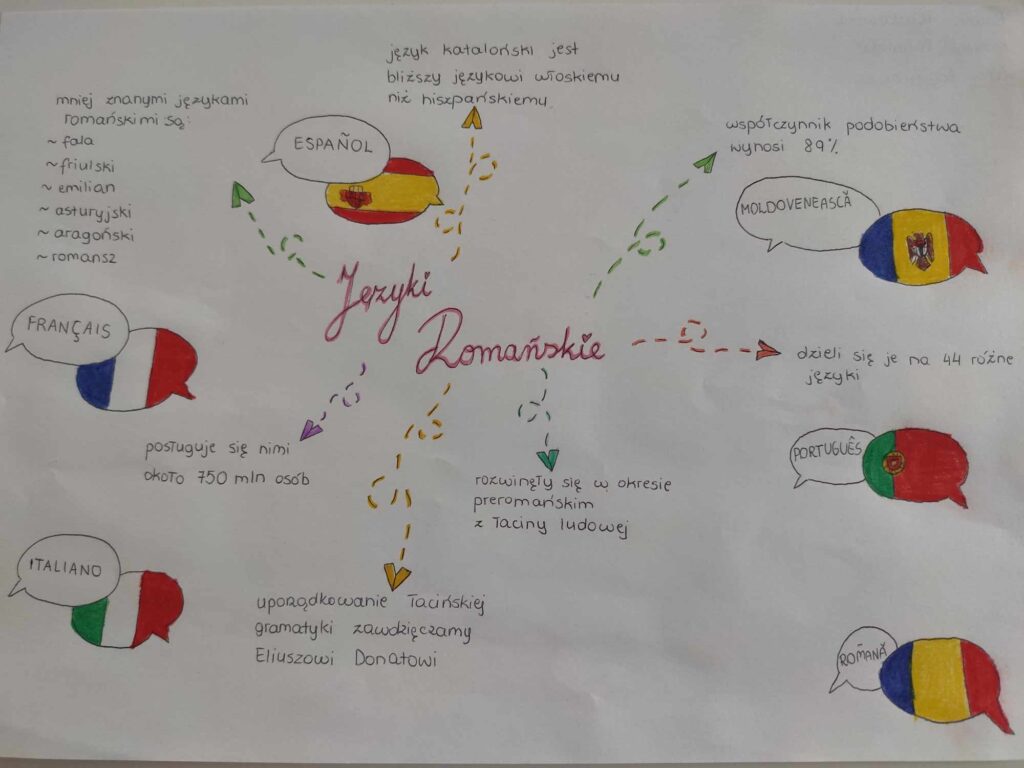 język kataloński jest
bliższy językowi włoskiemu
niż hiszpańskiemu
mniej znanymi językami
romańskimi są:
~ fala
~ friulski
~ emilian
~ asturyjski
~ aragoński
~ romansz
ESPAÑOL
współczynnik podobieństwa
wynosi 89%
MOLDOVENEASCĂ
Języki
Romańskie
FRANÇAIS
dzieli się je na 44 różne
języki
posługuje się nimi
około 750 mln osób
PORTUGUÊS
rozwinęły się w okresie
preromańskim
z łaciny ludowej
ITALIANO
uporządkowanie łacińskiej
gramatyki zawdzięczamy
Eliuszowi Donatowi
ROMANĂ